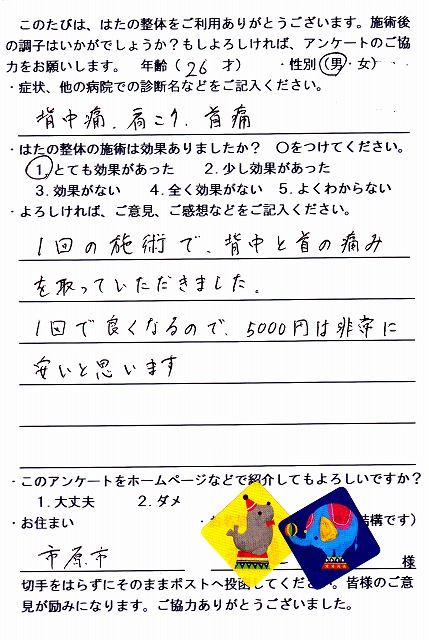 このたびは、はたの整体をご利用ありがとうございます。施術後
の調子はいかがでしょうか？もしよろしければ、アンケートのご協
力をお願いします。　年齢（26　才）　・性別（男・女）
・症状、他の病院での診断名などをご記入ください。
背中痛、肩こり、首痛
・はたの整体の施術は効果ありましたか？　〇をつけてください。
1.とても効果があった　　2.少し効果があった
3.効果がない　　4.全く効果がない　5.よくわからない
・よろしければ、ご意見、ご感想などをご記入ください。
1回の施術で、背中と首の痛み
を取っていただきました。
1回で良くなるので、5000円は非常に
安いと思います
・このアンケートをホームページなどで紹介してもよろしいですか？
1.大丈夫　　2.ダメ
・お住まい　　・　　結構です）
市原市　　様
切手をはらずにそのままポストへ投函してください。皆様のご意
見が励みになります。ご協力ありがとうございました。